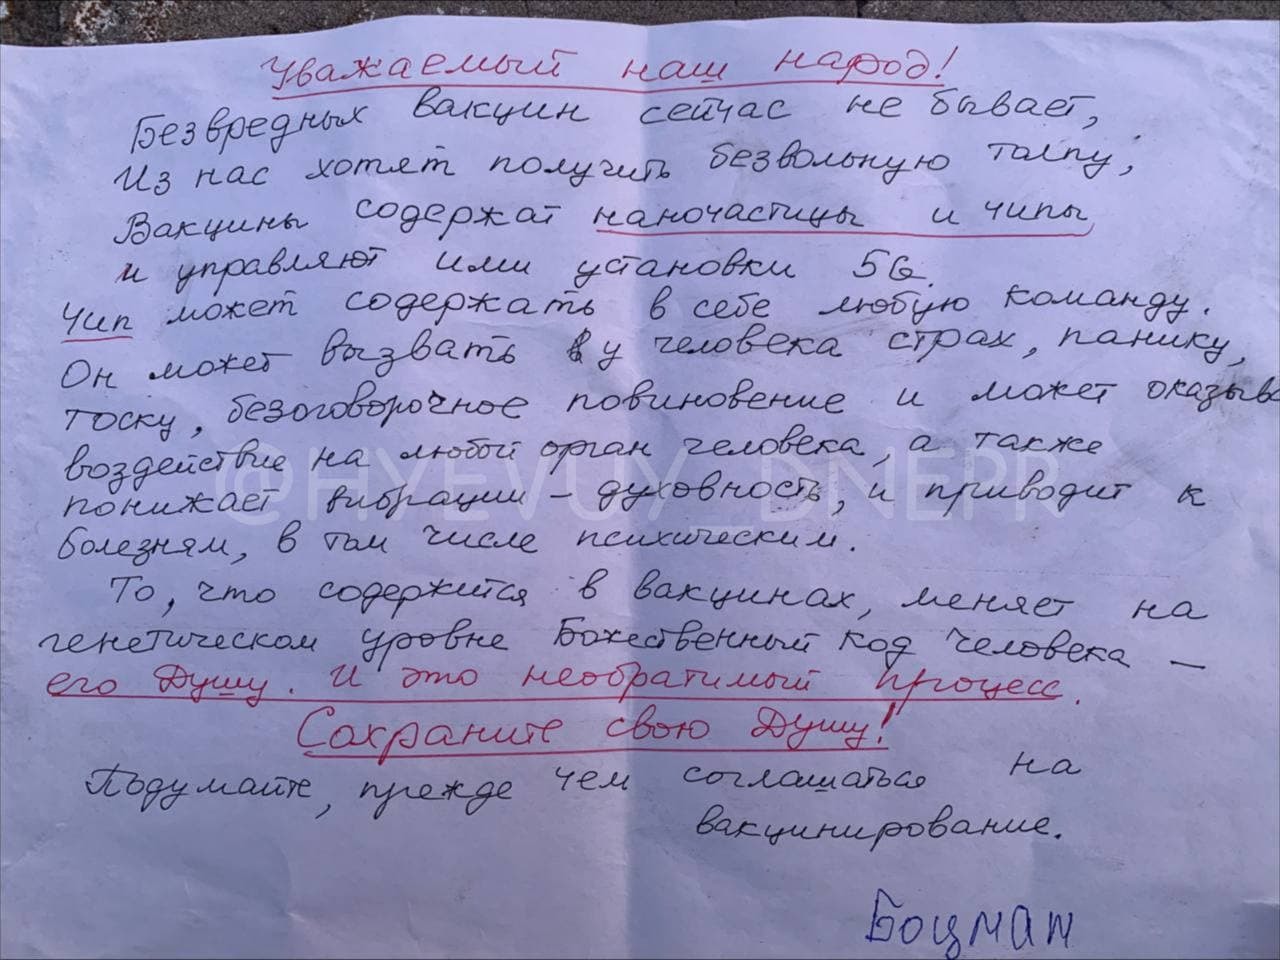 Уважаемый наш народ!
Безвредных вакцин сейчас не бывает,
Из нас хотят получить безвольную толпу,
Вакцины содержат наночастицы и чипы
и управляют ими установки 5G.
Чип может содержать в себе любую команду.
Он может вызвать у человека страх, панику,
тоску, безоговорочное повиновение и может оказыва
воздействие на любой орган человека, а также
понижает вибрации – духовность, и приводит к
болезням, в том числе психическим.
То, что содержится в вакцинах, меняет на
генетическом уровне Божественный код человека —
его Душу. И это необратимый процесс.
Сохраните свою Душу!
Подумайте, прежде чем соглашаться на
вакцинирование.
Боцман
@HYEVUY_DNEPR